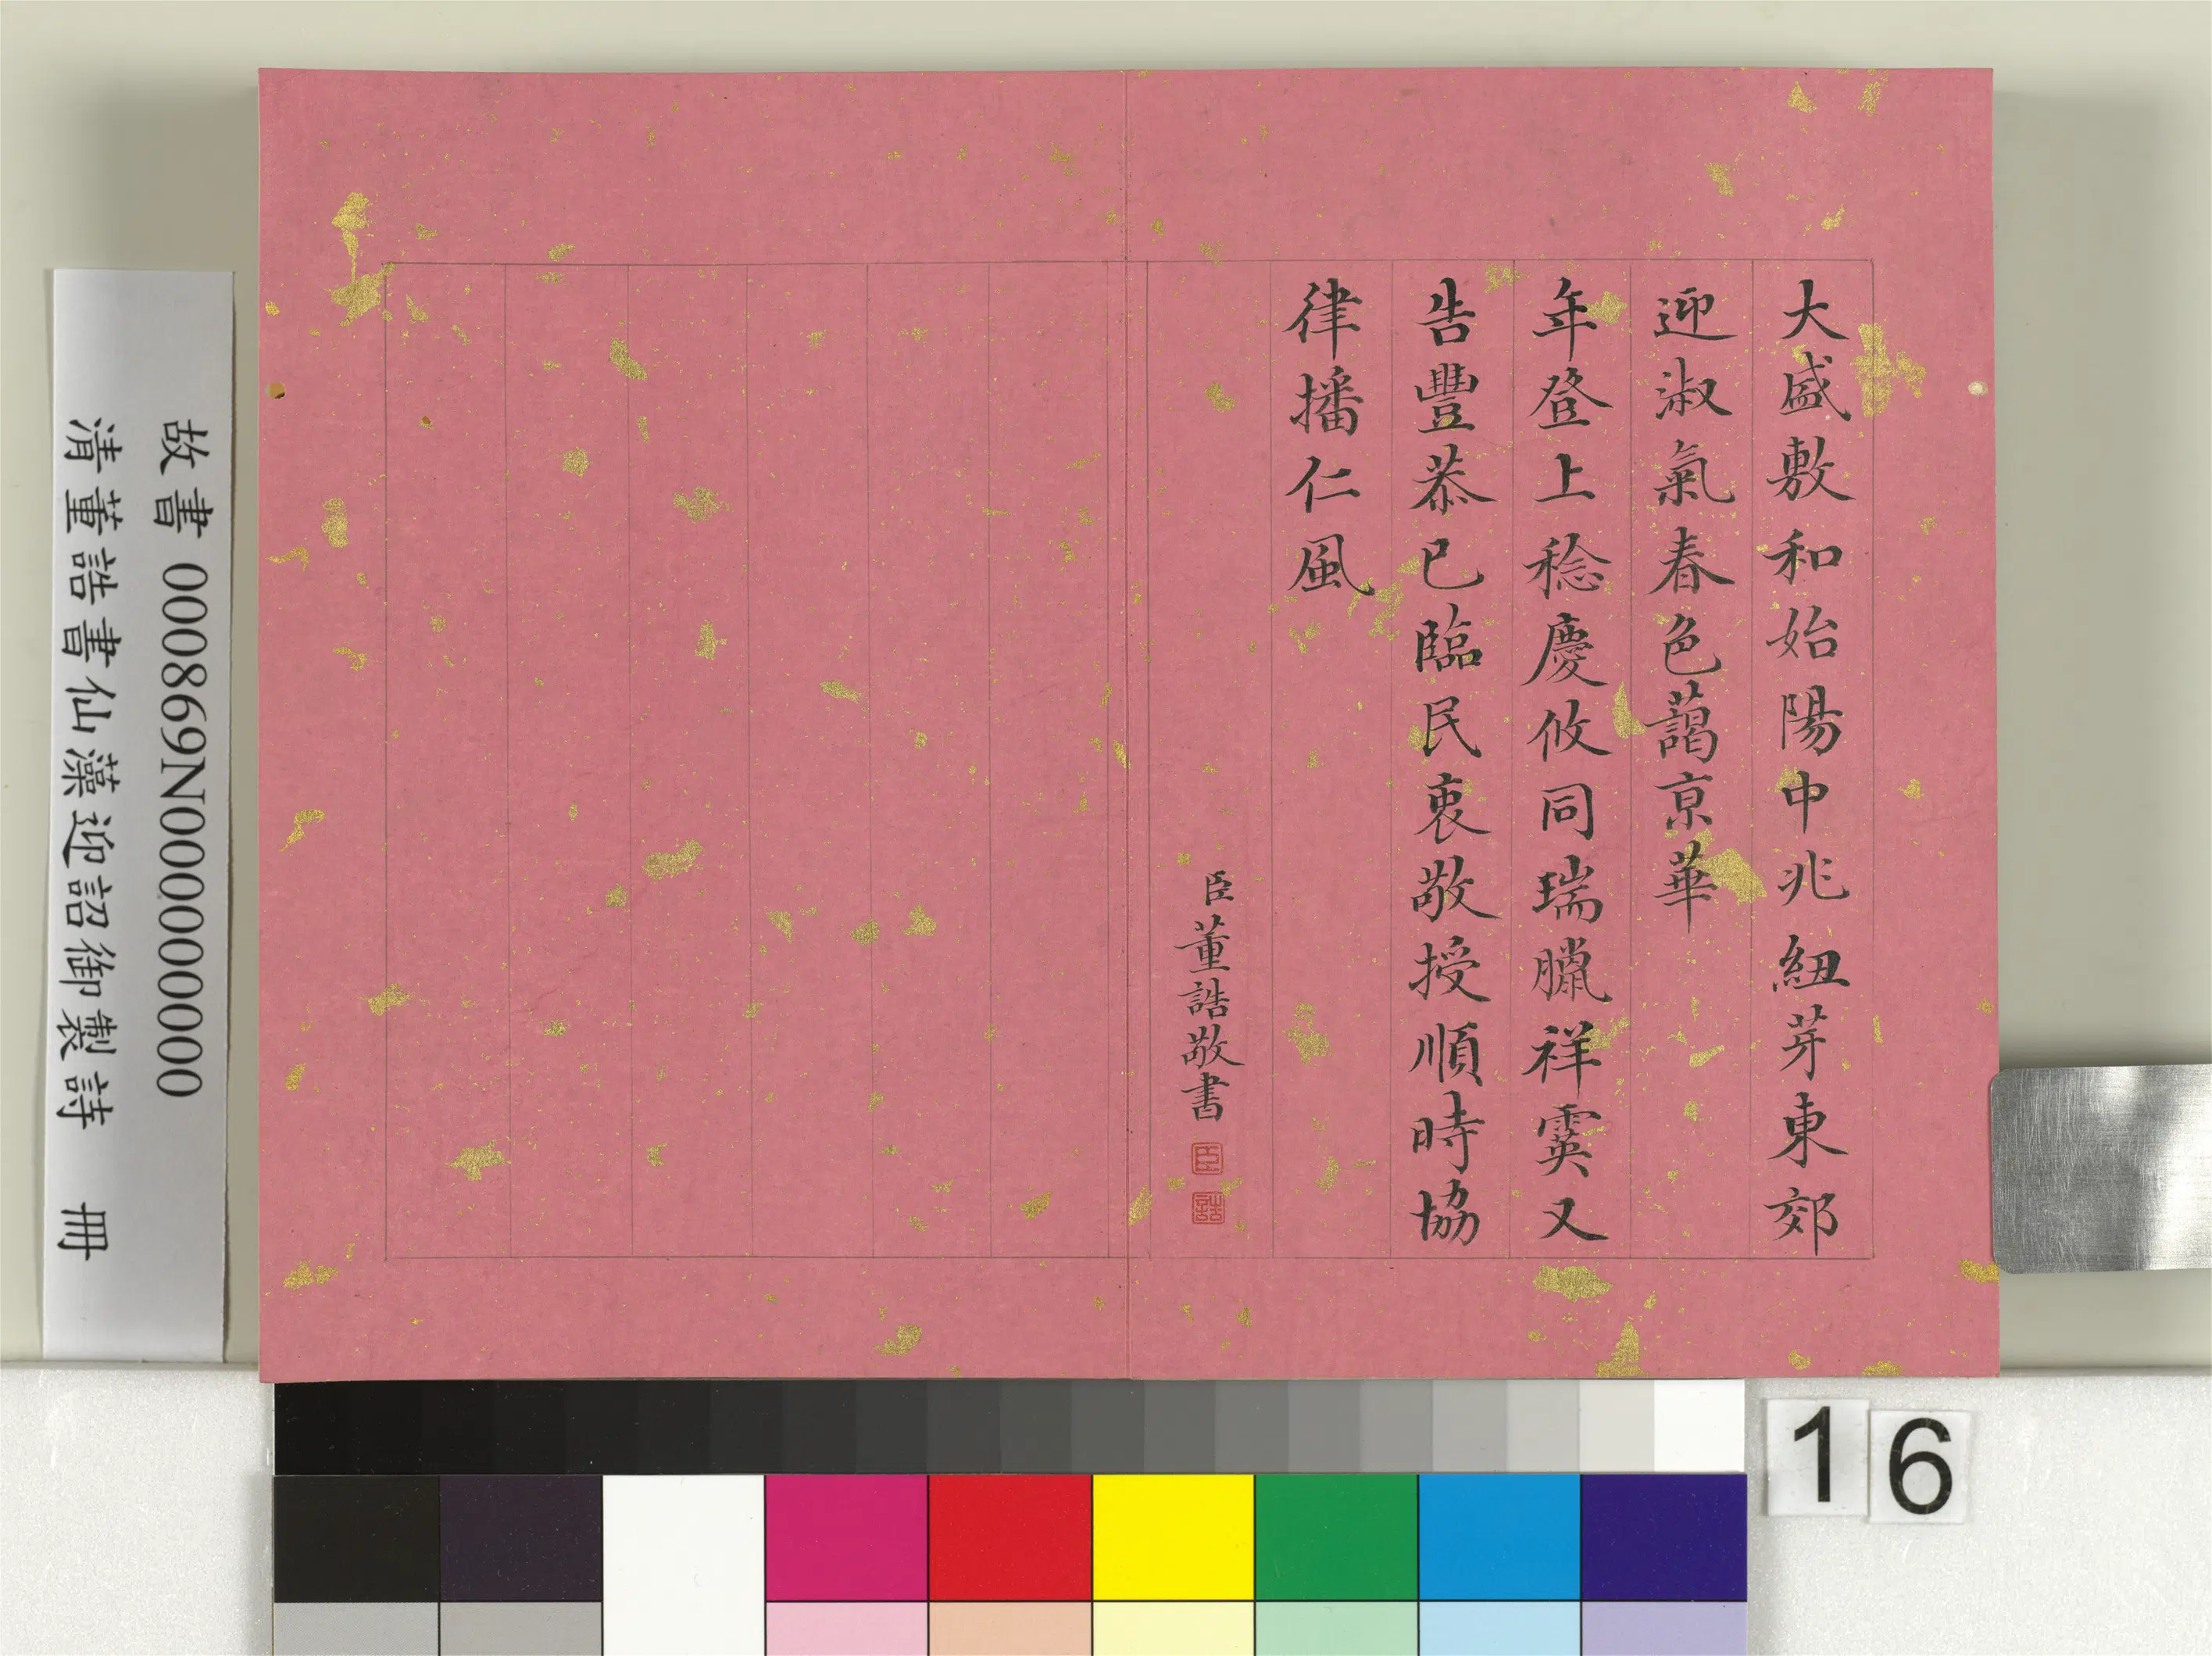 大盛敷和始陽中兆紐芽東郊
迎淑氣春色藹京華
年登上稔慶攸同瑞臘祥霙又
告豐恭已臨民衷敬授順時協
律播仁風
臣董誥敬書
臣
誥
故書 000869N000000000
清董誥書仙藻迎詔御製詩 冊
16